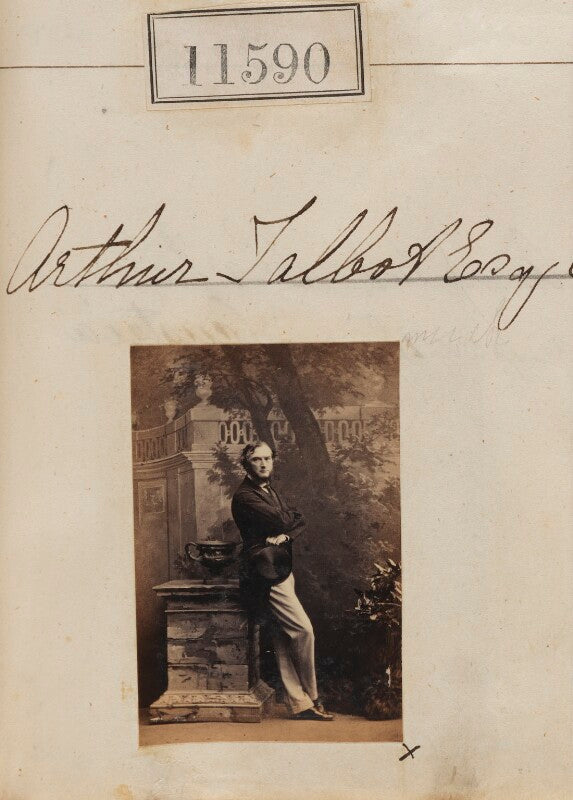 11590
Arthur Talbot Esq/
x